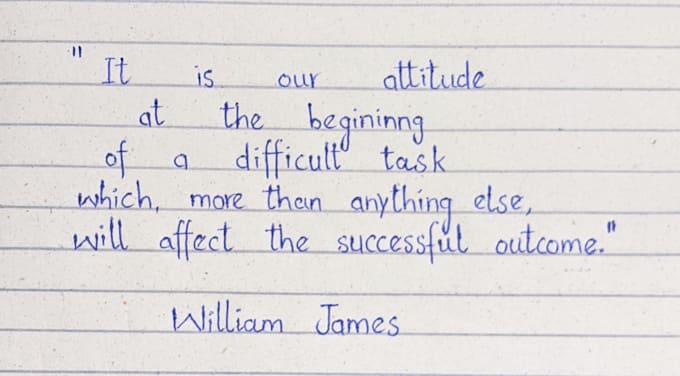 "It is our attitude
at the begininng
of a difficult task
which, more than anything else,
will affect the successful outcome."
William James